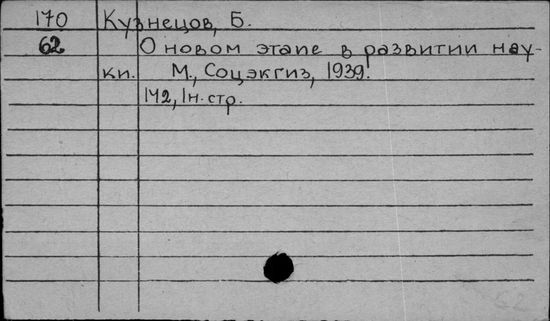 170 Кузнецов, Б.
62 О новом этапе в развитии нау-
ки. М., Соцэкгиз, 1939.
142, 1н. стр.
62